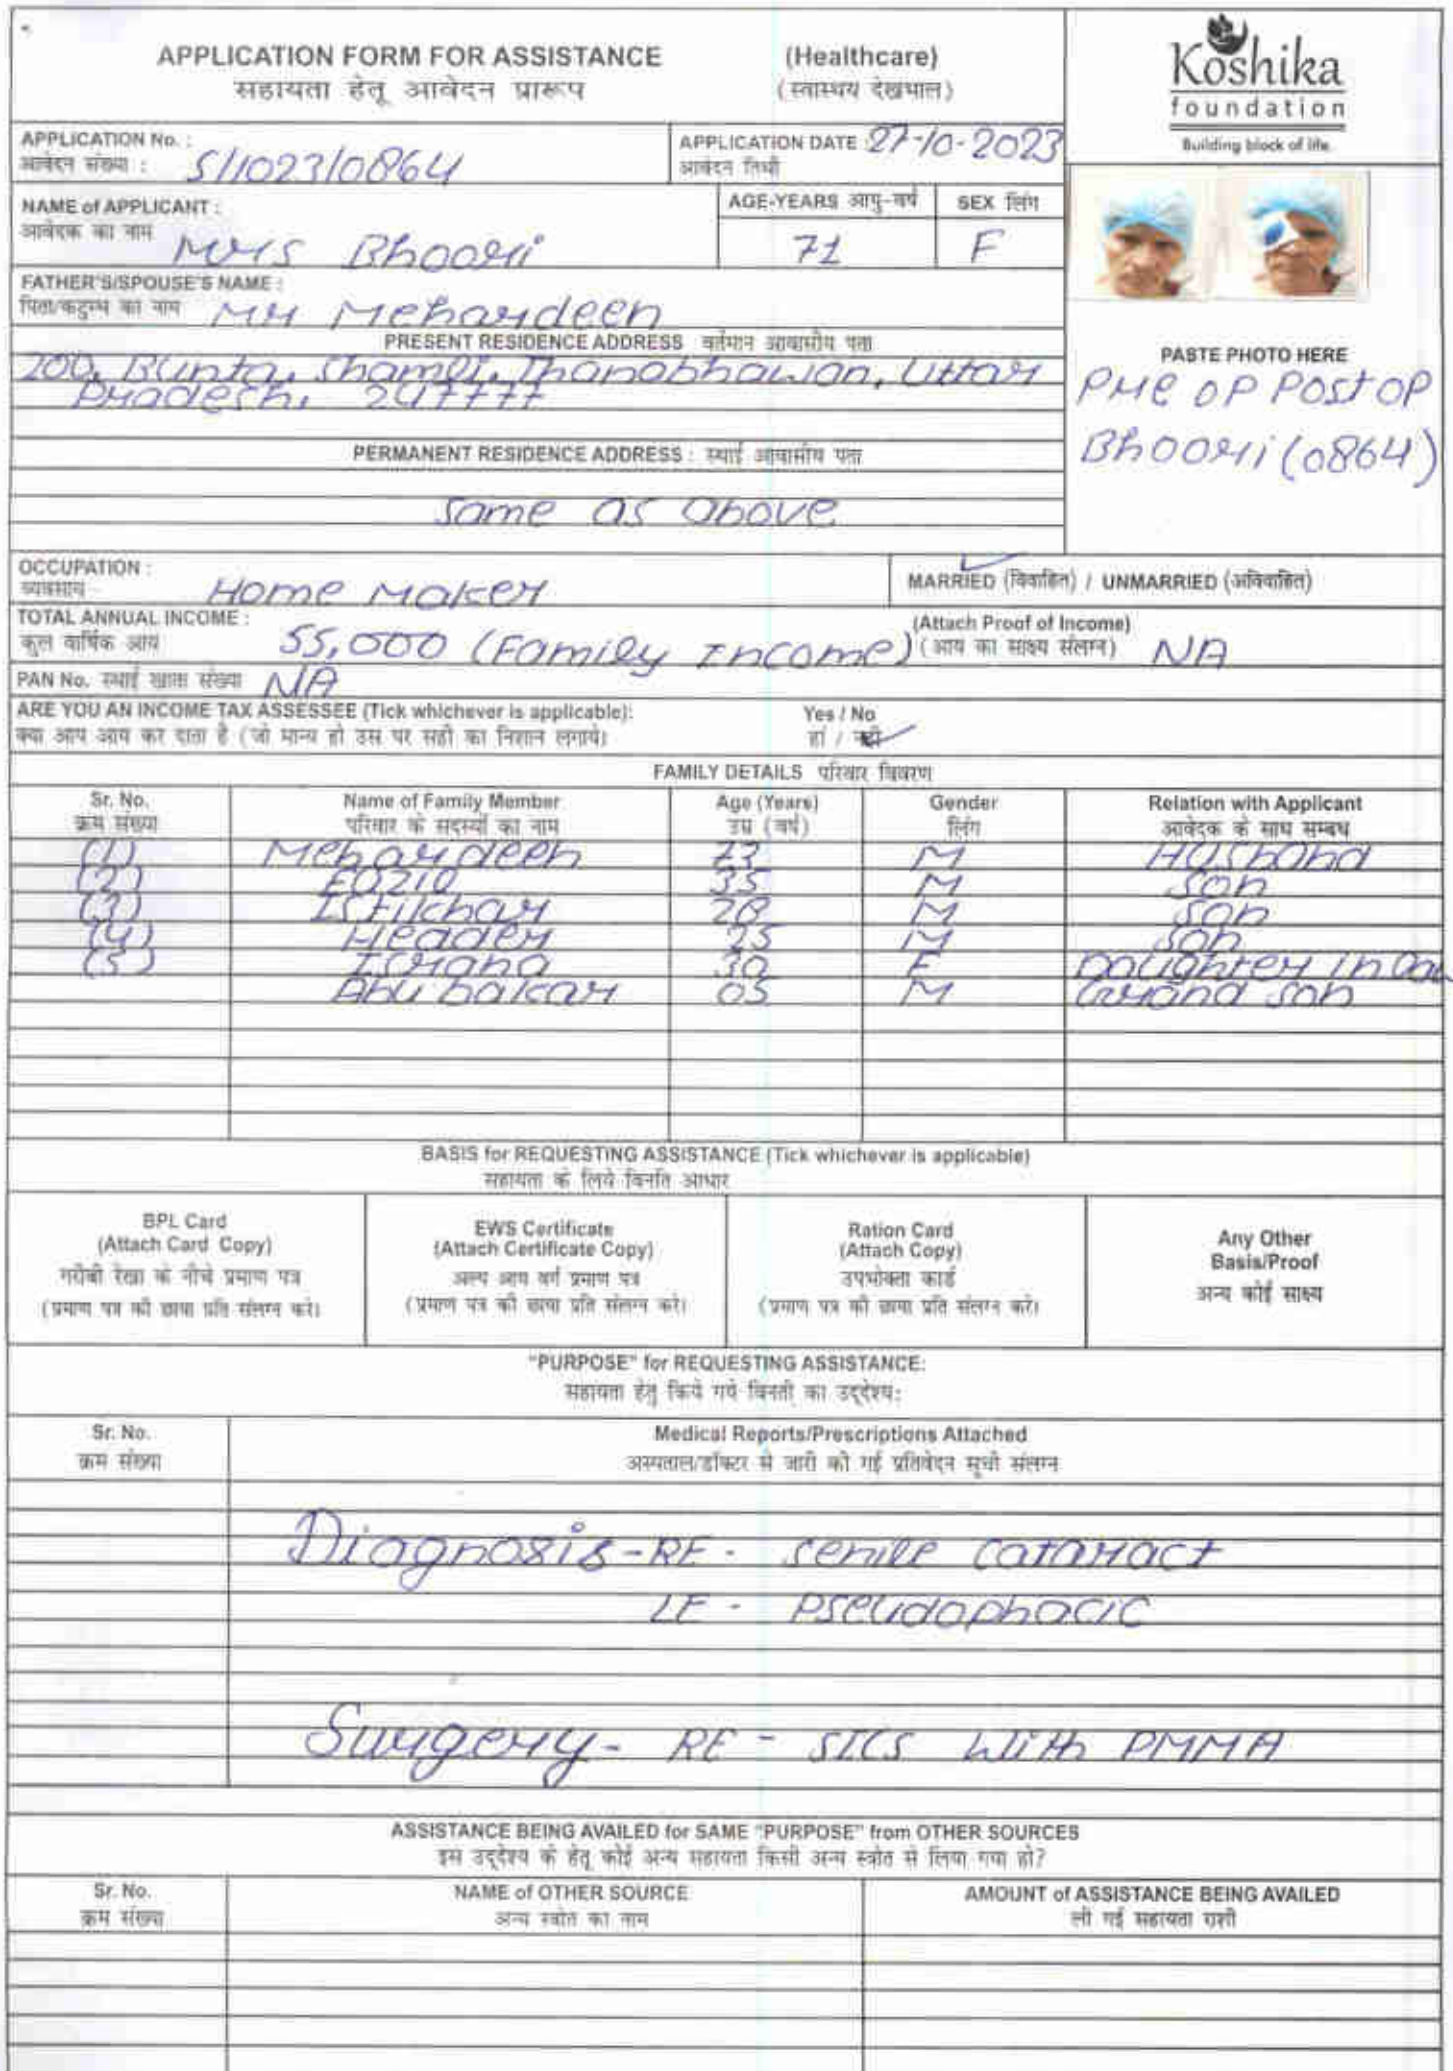 APPLICATION FORM FOR ASSISTANCE (Healthcare)
सहायता हेतू आवेदन प्रारूप (स्वास्थय देखभाल)
Koshika
foundation
Building block of life.
APPLICATION No. :
आवेदन संख्या : S/1023/0864
APPLICATION DATE : 27-10-2023
आवेदन तिथी
NAME of APPLICANT :
आवेदक का नाम Mrs Bhoori
AGE-YEARS आयु-वर्ष
71
SEX लिंग
F
FATHER'S/SPOUSE'S NAME :
पिता/कटुम्ब का नाम Mr Mehardeen
PRESENT RESIDENCE ADDRESS वर्तमान आवासीय पता
200, Bunta, Shamli, Thanabhawan, Uttar
Pradesh, 247777
PASTE PHOTO HERE
Pre OP Post OP
Bhoori (0864)
PERMANENT RESIDENCE ADDRESS : स्थाई आवासीय पता
Same as above
OCCUPATION :
व्यवसाय Home Maker
MARRIED (विवाहित) / UNMARRIED (अविवाहित)
TOTAL ANNUAL INCOME :
कुल वार्षिक आय 55,000 (Family Income)
(Attach Proof of Income)
(आय का साक्ष्य संलग्न) NA
PAN No. स्थाई खाता संख्या NA
ARE YOU AN INCOME TAX ASSESSEE (Tick whichever is applicable): Yes / No
क्या आप आय कर दाता है (जो मान्य हो उस पर सही का निशान लगाये) हां / नही
FAMILY DETAILS परिवार विवरण
Sr. No. Name of Family Member Age (Years) Gender Relation with Applicant
क्रम संख्या परिवार के सदस्यों का नाम उम्र (वर्ष) लिंग आवेदक के साथ सम्बध
(1) Mehardeen 73 M Husband
(2) Fozio 35 M Son
(3) Istikhar 28 M Son
(4) Header 25 M Son
(5) Israna 30 F Daughter in law
Abu bakar 05 M Grand son
BASIS for REQUESTING ASSISTANCE (Tick whichever is applicable)
सहायता के लिये विनति आधार
BPL Card
(Attach Card Copy)
गरीबी रेखा के नीचे प्रमाण पत्र
(प्रमाण पत्र की छाया प्रति संलग्न करे)
EWS Certificate
(Attach Certificate Copy)
अल्प आय वर्ग प्रमाण पत्र
(प्रमाण पत्र की छाया प्रति संलग्न करे)
Ration Card
(Attach Copy)
उपभोक्ता कार्ड
(प्रमाण पत्र की छाया प्रति संलग्न करे)
Any Other
Basis/Proof
अन्य कोई साक्ष्य
"PURPOSE" for REQUESTING ASSISTANCE:
सहायता हेतु किये गये विनती का उद्देश्य:
Sr. No. Medical Reports/Prescriptions Attached
क्रम संख्या अस्पताल/डॉक्टर से जारी की गई प्रतिवेदन सूची संलग्न
Diagnosis - RE - senile cataract
LE - Pseudophacic
Surgery - RE - SICS with PMMA
ASSISTANCE BEING AVAILED for SAME "PURPOSE" from OTHER SOURCES
इस उद्देश्य के हेतू कोई अन्य सहायता किसी अन्य स्त्रोत से लिया गया हो?
Sr. No. NAME of OTHER SOURCE AMOUNT of ASSISTANCE BEING AVAILED
क्रम संख्या अन्य स्त्रोत का नाम ली गई सहायता राशी